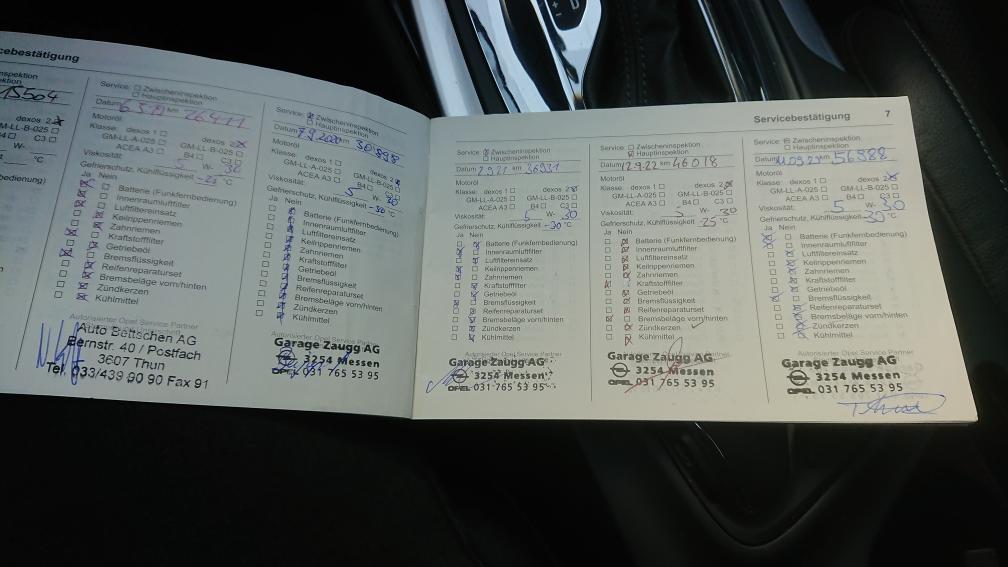 cebestätigung
nspektion
ektion
15504
dexos 2
M-LL-B-025
C3
°C
bedienung)
Service: Zwischeninspektion
Hauptinspektion
Datum 6.5.19 km 26411
Motoröl
Klasse: dexos 1 dexos 2
GM-LL-A-025 GM-LL-B-025
ACEA A3 B4 C3
Viskosität: 5 W- 30
Gefrierschutz, Kühlflüssigkeit -25 °C
Ja Nein
Batterie (Funkfernbedienung)
Innenraumluftfilter
Luftfiltereinsatz
Keilrippenriemen
Zahnriemen
Kraftstofffilter
Getriebeöl
Bremsflüssigkeit
Reifenreparaturset
Bremsbeläge vorn/hinten
Zündkerzen
Kühlmittel
Autorisierter Opel Service Partner
Auto Bettschen AG
Bernstr. 40 / Postfach
3607 Thun
Tel. 033/439 90 90 Fax 91
Service: Zwischeninspektion
Hauptinspektion
Datum 7.9.2020 km 30'898
Motoröl
Klasse: dexos 1 dexos 2
GM-LL-A-025 GM-LL-B-025
ACEA A3 B4 C3
Viskosität: 5 W- 30
Gefrierschutz, Kühlflüssigkeit -30 °C
Ja Nein
Batterie (Funkfernbedienung)
Innenraumluftfilter
Luftfiltereinsatz
Keilrippenriemen
Zahnriemen
Kraftstofffilter
Getriebeöl
Bremsflüssigkeit
Reifenreparaturset
Bremsbeläge vorn/hinten
Zündkerzen
Kühlmittel
Autorisierter Opel Service Partner
Garage Zaugg AG
3254 Messen
OPEL 031 765 53 95
Servicebestätigung 7
Service: Zwischeninspektion
Hauptinspektion
Datum 2.9.21 km 36931
Motoröl
Klasse: dexos 1 dexos 2
GM-LL-A-025 GM-LL-B-025
ACEA A3 B4 C3
Viskosität: 5 W- 30
Gefrierschutz, Kühlflüssigkeit -30 °C
Ja Nein
Batterie (Funkfernbedienung)
Innenraumluftfilter
Luftfiltereinsatz
Keilrippenriemen
Zahnriemen
Kraftstofffilter
Getriebeöl
Bremsflüssigkeit
Reifenreparaturset
Bremsbeläge vorn/hinten
Zündkerzen
Kühlmittel
Autorisierter Opel Service Partner
Garage Zaugg AG
3254 Messen
OPEL 031 765 53 95
Service: Zwischeninspektion
Hauptinspektion
Datum 12.9.22 km 46018
Motoröl
Klasse: dexos 1 dexos 2
GM-LL-A-025 GM-LL-B-025
ACEA A3 B4 C3
Viskosität: 5 W- 30
Gefrierschutz, Kühlflüssigkeit -25 °C
Ja Nein
Batterie (Funkfernbedienung)
Innenraumluftfilter
Luftfiltereinsatz
Keilrippenriemen
Zahnriemen
Kraftstofffilter
Getriebeöl
Bremsflüssigkeit
Reifenreparaturset
Bremsbeläge vorn/hinten
Zündkerzen
Kühlmittel
Garage Zaugg AG
3254 Messen
OPEL 031 765 53 95
Service: Zwischeninspektion
Hauptinspektion
Datum km 56988
Motoröl
Klasse: dexos 1 dexos 2
GM-LL-A-025 GM-LL-B-025
ACEA A3 B4 C3
Viskosität: 5 W- 30
Gefrierschutz, Kühlflüssigkeit -30 °C
Ja Nein
Batterie (Funkfernbedienung)
Innenraumluftfilter
Luftfiltereinsatz
Keilrippenriemen
Zahnriemen
Kraftstofffilter
Getriebeöl
Bremsflüssigkeit
Reifenreparaturset
Bremsbeläge vorn/hinten
Zündkerzen
Kühlmittel
Autorisierter Opel Service Partner
Garage Zaugg AG
3254 Messen
OPEL 031 765 53 95
D